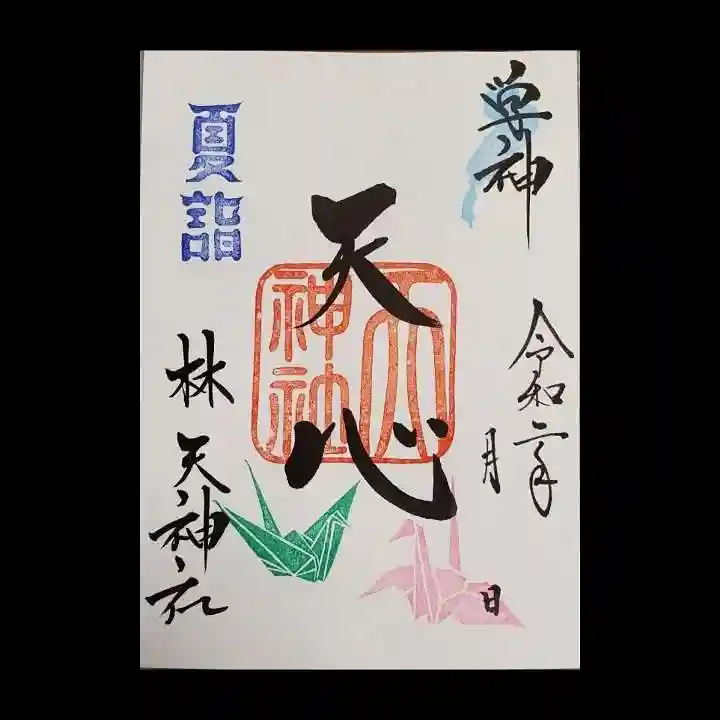 学神
令和二年
月
日
天心
天神社
夏詣
林天神社